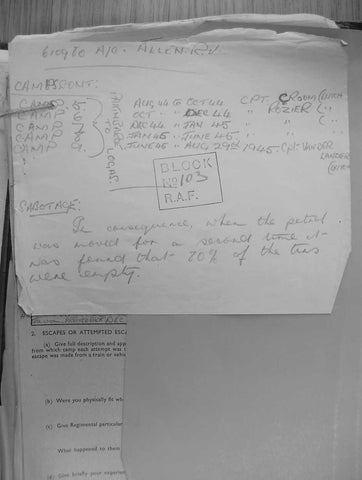 610980 A/C. ALLEN R.V.
CAMPS CONT:
CAMP 5 AUG 44 to OCT 44 CPT. CROOM (DUTCH
CAMP 6 OCT " DEC 44 " POZIER ("
CAMP 7 DEC 44 " JAN 45 " " "
CAMP 8 JAN 45 " JUNE 45 " " "
CAMP 9 JUNE 45 " AUG 29th 1945. Cpt. VAN DER
LANDER
TO LOGAS
BLOCK
No 103
R.A.F.
SABOTAGE:
In consequence, when the petrol
was moved for a second time it
was found that 20% of the tins
were empty.
2. ESCAPES OR ATTEMPTED ESCA
(a) Give full description and app
from which camp each attempt was
escape was made from a train or vehic
(b) Were you physically fit wh
(c) Give Regimental particular
What happened to them
(d) Give briefly your experien